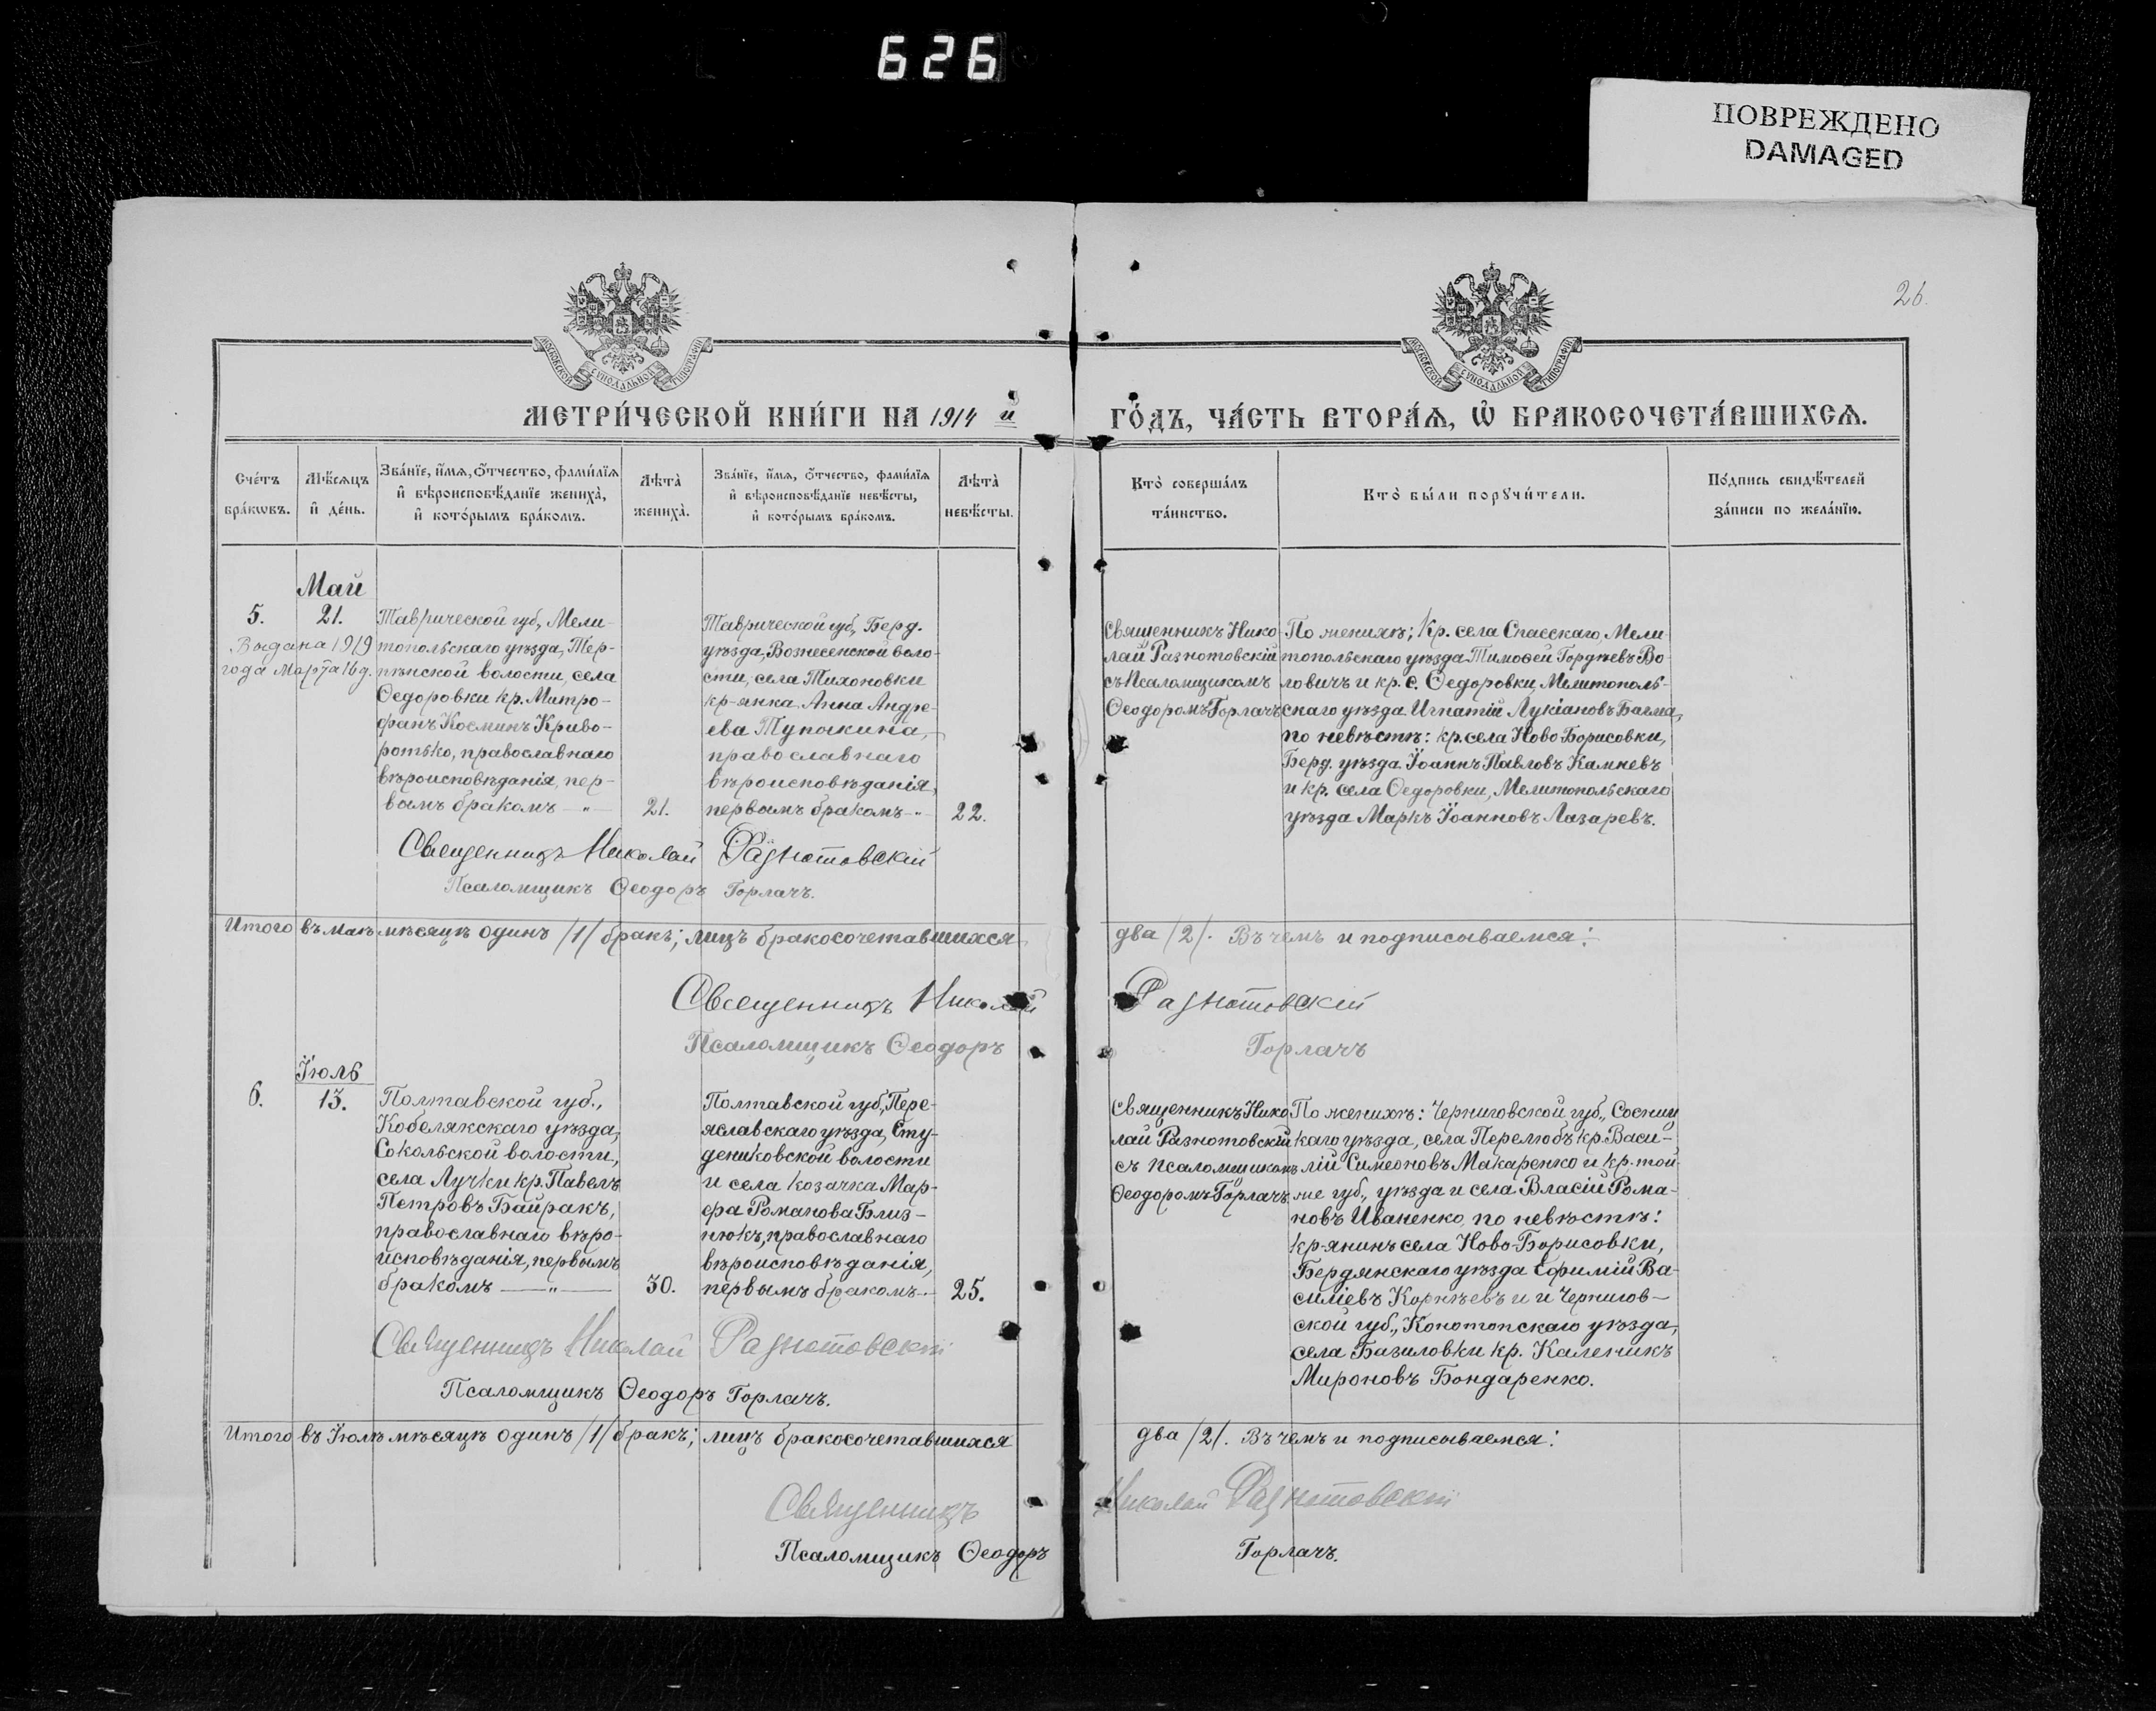 626
ПОВРЕЖДЕНО
DAMAGED
26.
МОСКОВСКОЙ СУНОДАЛЬНОЙ ТИПОГРАФІИ
МОСКОВСКОЙ СУНОДАЛЬНОЙ ТИПОГРАФІИ
МЕТРИ́ЧЕСКОЙ КНИ́ГИ НА 1914 й ГО́ДЪ, ЧА́СТЬ ВТОРА́Ѧ, Ѽ БРАКОСОЧЕТА́ВШИХСѦ.
Сче́тъ
бра́кѡвъ.
Мѣ́сѧцъ
и҆ де́нь.
Зва́нїе, и҆́мѧ, ѻ҆́тчество, фами́лїѧ
и҆ вѣроисповѣ́данїе женихà,
и҆ кото́рымъ бра́комъ.
Лѣтà
женихà.
Зва́нїе, и҆́мѧ, ѻ҆́тчество, фами́лїѧ
и҆ вѣроисповѣ́данїе невѣ́сты,
и҆ кото́рымъ бра́комъ.
Лѣтà
невѣ́сты.
Кто̀ соверша́лъ
та́инство.
Кто̀ бы́ли порꙋчи́тели.
По́дпись свидѣ́телей
за́писи по жела́нїю.
Май
5.
21.
Выдана 1919
года Марта 16 д.
Таврической губ., Мели-
топольскаго уѣзда, Тер-
пѣнской волости, села
Ѳедоровки кр. Митро-
фанъ Косминъ Криво-
ротько, православнаго
вѣроисповѣданія, пер-
вымъ бракомъ — " —
21.
Таврической губ., Берд.
уѣзда, Вознесенской воло-
сти, села Тихоновки
кр-янка Анна Андре-
ева Тупыкина,
православнаго
вѣроисповѣданія,
первымъ бракомъ -"-
22.
Священникъ Нико
лай Разнотовскій
съ Псаломщикомъ
Ѳеодоромъ Горлачъ
По женихѣ; Кр. села Спасскаго, Мели
топольскаго уѣзда Тимоѳей Гордѣевъ Во-
ловичъ и кр. с. Ѳедоровки, Мелитополь-
скаго уѣзда Игнатій Лукіановъ Багма,
по невѣстѣ: кр. села Ново Борисовки,
Берд. уѣзда Іоаннъ Павловъ Камневъ
и кр. села Ѳедоровки, Мелитопольскаго
уѣзда Маркъ Іоанновъ Лазаревъ.
Священникъ Николай Разнотовскій
Псаломщикъ Ѳеодоръ Горлачъ.
Итого въ маѣ мѣсяцѣ одинъ /1/ бракъ; лицъ бракосочетавшихся два /2/. Въ чемъ и подписываемся:
Священникъ Николай Разнотовскій
Псаломщикъ Ѳеодоръ Горлачъ
Іюль
6.
13.
Полтавской губ.,
Кобелякскаго уѣзда,
Сокольской волости,
села Лучки кр. Павелъ
Петровъ Байракъ,
православнаго вѣро-
исповѣданія, первымъ
бракомъ — " —
30.
Полтавской губ., Пере-
яславскаго уѣзда, Сту-
дениковской волости
и села козачка Мар-
фа Романова Близ-
нюкъ, православнаго
вѣроисповѣданія,
первымъ бракомъ -"-
25.
Священникъ Нико
лай Разнотовскій
съ псаломщикомъ
Ѳеодоромъ Горлачъ
По женихѣ: Черниговской губ., Сосниц
каго уѣзда, села Перелюбъ кр. Васи-
лій Симеоновъ Макаренко и кр. той-
же губ., уѣзда и села Власій Рома-
новъ Иваненко, по невѣстѣ:
кр-янинъ села Ново-Борисовки,
Бердянскаго уѣзда Ефимій Ва-
силіевъ Корнѣевъ и и Чернигов-
ской губ., Конотопскаго уѣзда,
села Базиловки кр. Каленикъ
Мироновъ Бондаренко.
Священникъ Николай Разнотовскій
Псаломщикъ Ѳеодоръ Горлачъ.
Итого въ Іюлѣ мѣсяцѣ одинъ /1/ бракъ; лицъ бракосочетавшихся два /2/. Въ чемъ и подписываемся:
Священникъ Николай Разнотовскій
Псаломщикъ Ѳеодоръ Горлачъ.